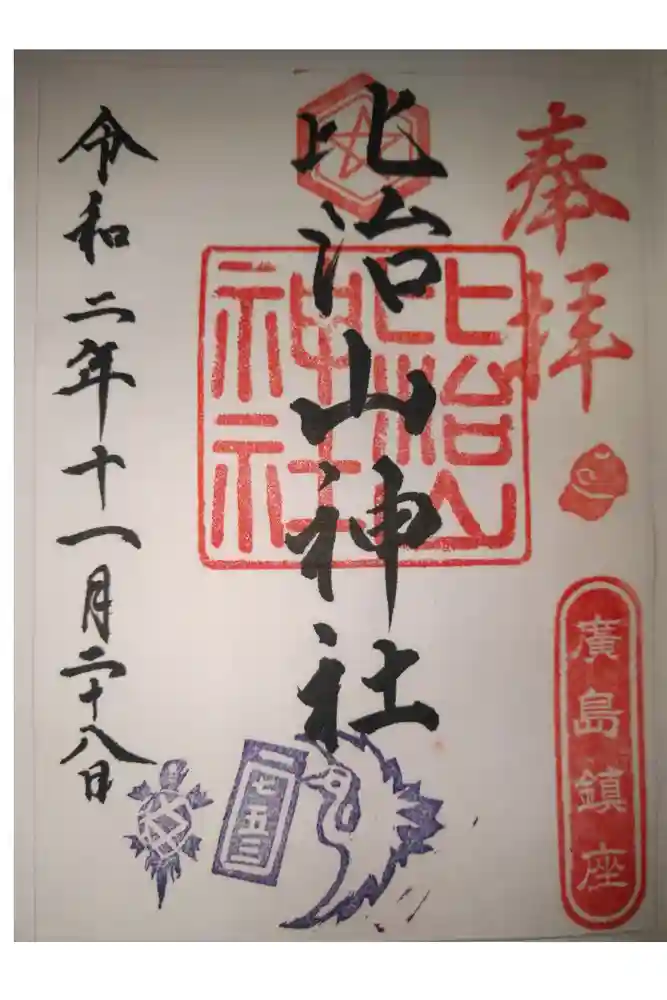 奉拝
廣島鎮座
比治山神社
比治山
神社
七五三
令和二年十一月二十八日